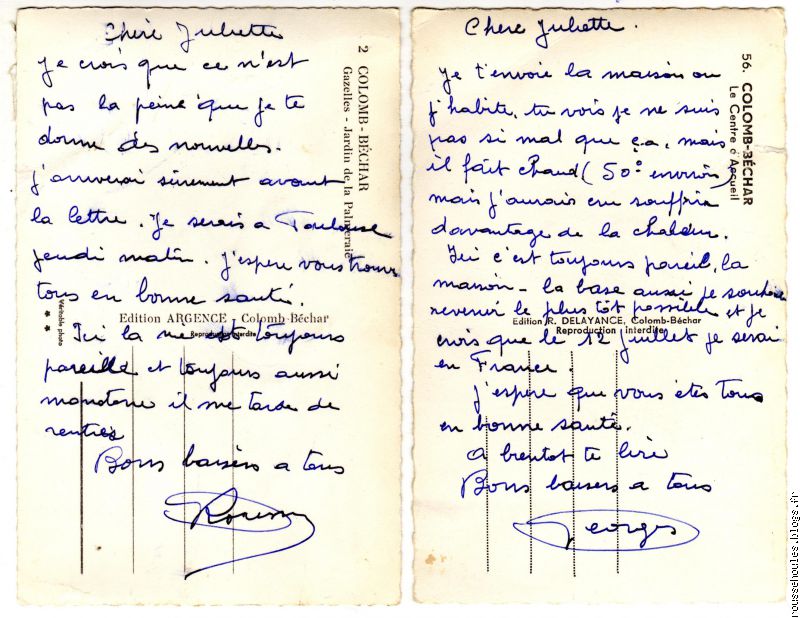 Chère Juliette
Je crois que ce n'est
pas la peine que je te
donne des nouvelles.
J'arriverai sûrement avant
la lettre. Je serais a Toulouse
jeudi matin. J'espere vous trouver
tous en bonne santé.
Ici la vie est toujours
pareille et toujours aussi
monotone il me tarde de
rentrer
Bons baisers a tous
2 COLOMB-BÉCHAR
Gazelles - Jardin de la Palmeraie
Edition ARGENCE - Colomb-Béchar
Reproduction interdite
Véritable photo
Chere Juliette.
Je t'envoie la maison ou
j'habite, tu vois je ne suis
pas si mal que ça, mais
il fait chaud (50° environ)
mais j'aurais cru souffrir
davantage de la chaleur.
Ici c'est toujours pareil, la
maison - la base aussi je souhaite
revenir le plus tôt possible et je
crois que le 12 juillet je serai
en France.
J'espère que vous êtes tous
en bonne santé.
a bientot te lire
Bons baisers a tous
Georges
56. COLOMB-BÉCHAR
Le Centre d'Accueil
Edition R. DELAYANCE, Colomb-Béchar
Reproduction interdite
roussehoules.blogs.fr